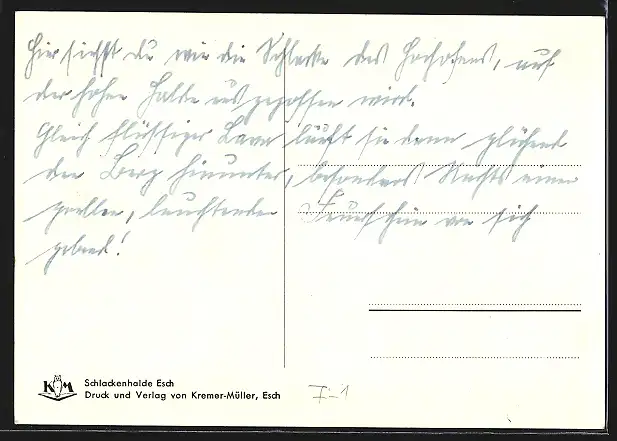 Hier siehst du wie die Schlacke des Hochofens, auf
der hohen Halde ausgegossen wird.
Gleich flüssiger Lava läuft sie dann glühend
den Berg hinunter, besonders Nachts einen
grellen, leuchtenden Feuerschein von sich
gebend!
KM
Schlackenhalde Esch
Druck und Verlag von Kremer-Müller, Esch
I-1